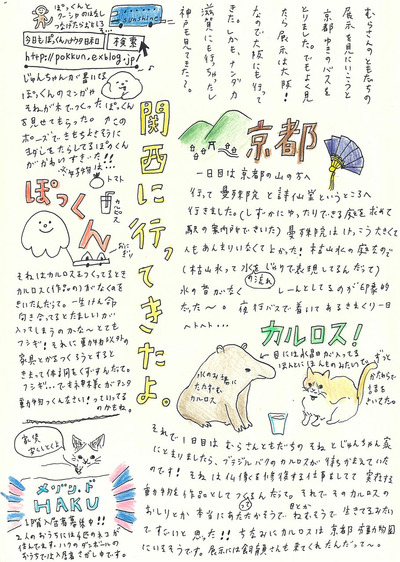 むらさんのともだちの
展示を見にいこうと
京都ゆきのバスを
とりました。でもよく見
たら展示は大阪!
なので大阪にも行って
きた。しかも、ナンダカ
滋賀にも行っちゃたし
神戸も見てきた〜。
関西に行ってきたよ。
京都
一日目は京都の山の方へ
行って曼殊院と詩仙堂というところへ
行きました。(しずかにゆったりできる庭を求めて
駅の案内所できいた) 曼殊院はけっこうたきくて
人もあんまりいなくてよかった! 枯山水の庭などで
(枯山水って水をじゃりで表現してるんだって)
の流れ
水の音がなく しーんとしてるのが印象的
だった〜。夜行バスで着いてあるきまくり一日
ヘトヘト...
カルロス!
目には水晶が入ってる
ほんとにほんものみたいで。
ずっと
かたわらで
話を
きいてた。
水のお皿に
たたずむ
カルロス
それで1日目はむらさんともだちのそねとじゅんちゃん家
にとまりましたら、ブラジルバクのカルロスが待ちかまえていた
のです! そねは仏像を修復する仕事をしてて 実在する
動物を作品としてつくるんだって。それでそのカルロスの
おしりとか本当にあたたかそうで ねむそうで 生きてるみたい
目とか
ですごいと思った!! ちなみにカルロスは京都市動物園
にいるそうです。展示には飼育員さんも来てくれたんだって〜。
ぽっくんと
sunshine
今日もぽっくんハウタ日和
検索
http://pokkun.exblog.jp/
じゅんちゃんが書いてる
ぽっくんのマンガや
そねが木でつくった ぽっくん
を見せてもらった。 力この
ポーズで きもちよさそうに
ヨダレをたらしてるぽっくん
がかわいすぎた!!
※好物は...
トマト
カルピス
おにぎり
ぽっくん
それはカルロスをつくってるとき
カルロス(作品の)のまがなくなを
きいたんだって。一生けん命
向き合ってるとたましいが
入ってしまうのかな〜とても
フシギ! それに動物以外の
家具とかをつくろうとすると
きまって体調をくずすんだって。
フシギ...で
動物つくんなさい!っていってる
のかもね。
家族
メゾン・ド
HAKU
1階入居者募集中!!
2人のおうちには4匹のネコが
住んでます。ハクのダンボールの
おうちでは入居者さがし中です。